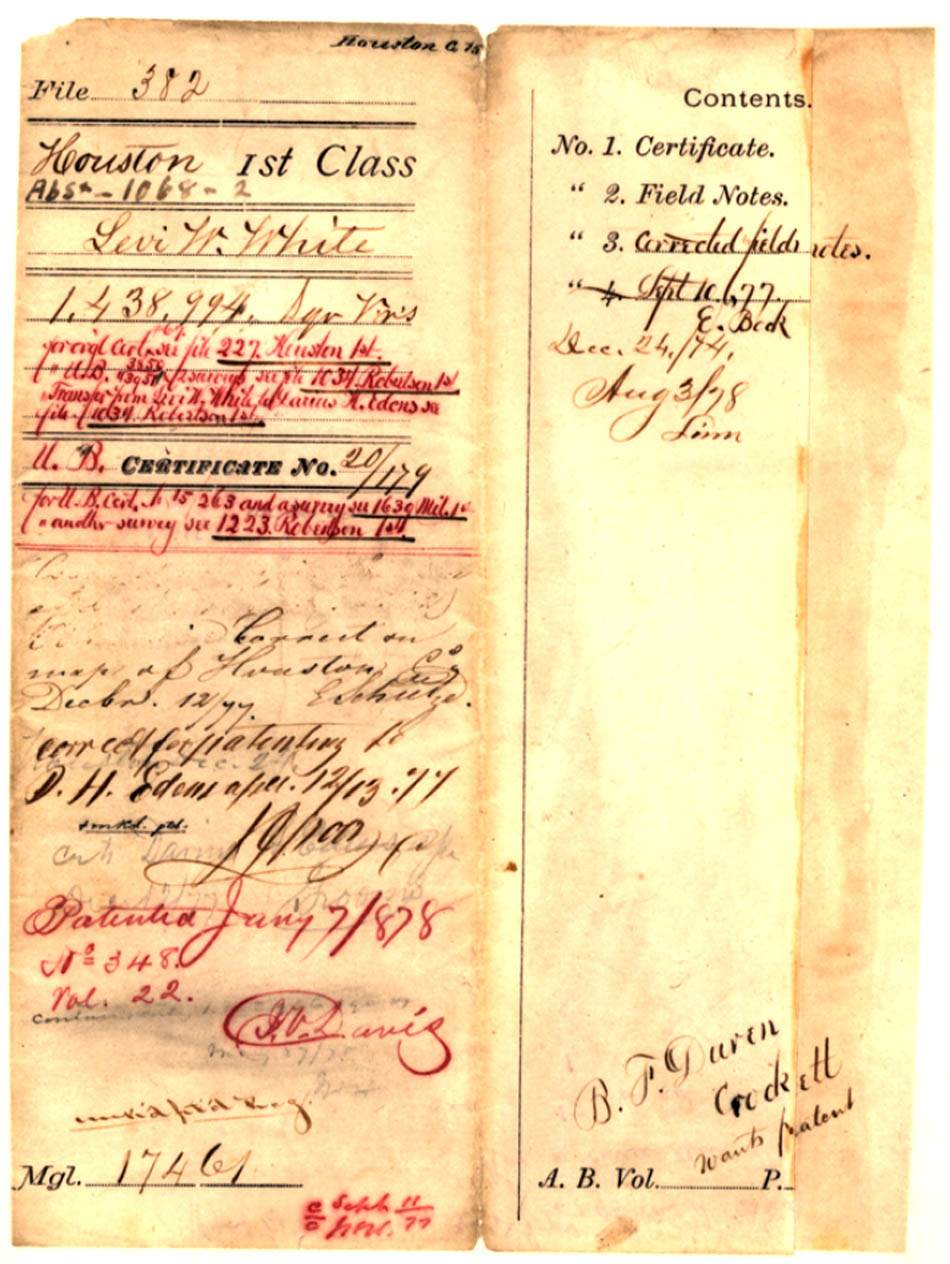 Houston C
File 382
Houston 1st Class
Abst - 1068 - 2
Levi W. White
1,438,994. Sqr Vrs
for orig'l Cert. see file 227. Houston 1st.
U.B. survey see file 1034 Robertson 1st
Transfer from Levi W. White to Darius H. Edens see
file 1034. Robertson 1st.
U. B. CERTIFICATE No. 20/179
for U.B. Cert. 15/263 and a survey see 1630 Mil. 1st
" another survey see 1223. Robertson 1st.
Correct on
map of Houston Co
Decbr. 12/77. E Schutze.
correct for patenting to
D. H. Edens 12/13.77
Patented Jany 7/1878
No 348.
Vol: 22.
Davis
Mgl. 17461
Sept 11/77
Contents.
No. 1. Certificate.
" 2. Field Notes.
" 3. Corrected field notes.
" 4. Sept 10/77.
E. Beck
Dec. 24/74.
Aug 3/78
Linn
B. F. Duren
Crockett
wants patent
A. B. Vol. P.